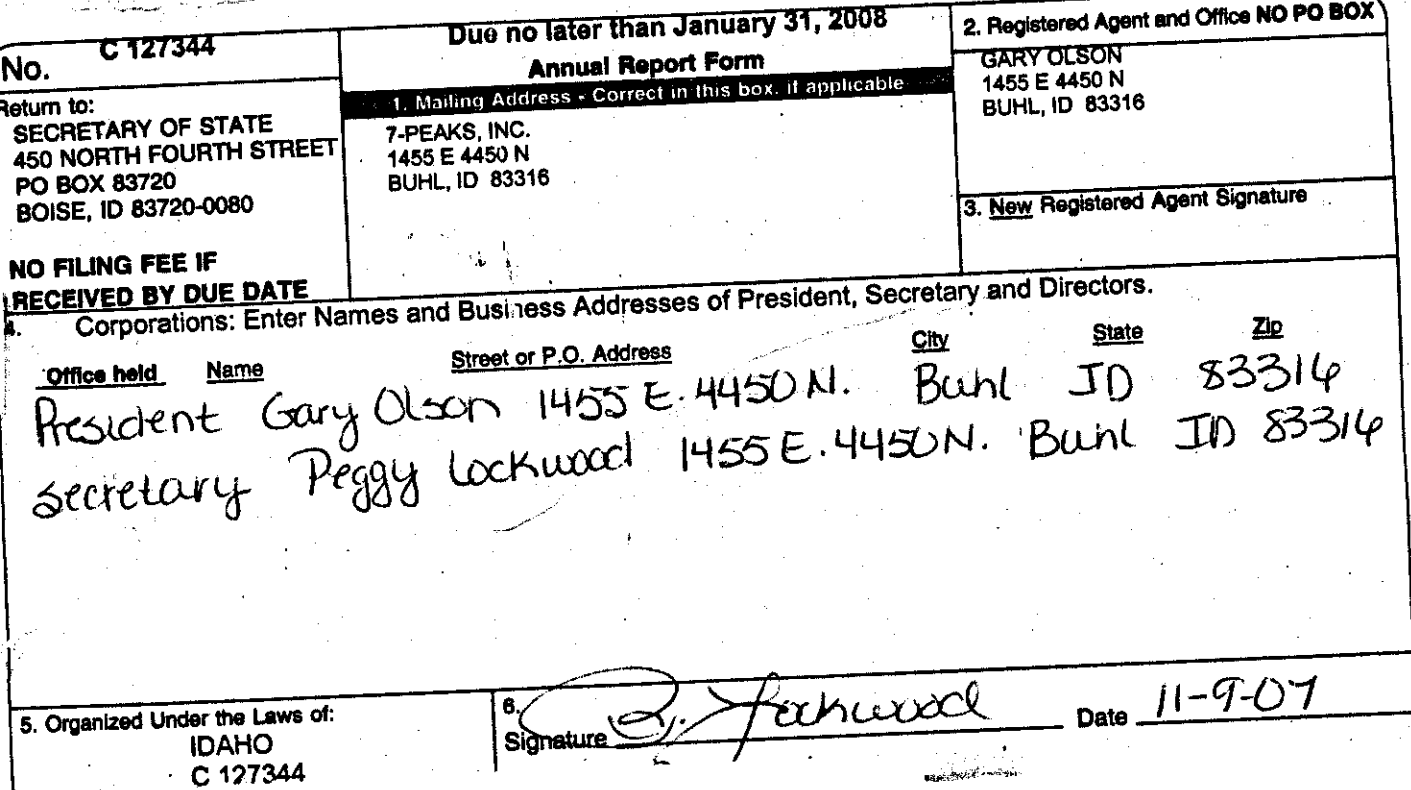 No. C 127344
Return to:
SECRETARY OF STATE
450 NORTH FOURTH STREET
PO BOX 83720
BOISE, ID 83720-0080
NO FILING FEE IF
RECEIVED BY DUE DATE
Due no later than January 31, 2008
Annual Report Form
1. Mailing Address - Correct in this box, if applicable
7-PEAKS, INC.
1455 E 4450 N
BUHL, ID 83316
2. Registered Agent and Office NO PO BOX
GARY OLSON
1455 E 4450 N
BUHL, ID 83316
3. New Registered Agent Signature
4. Corporations: Enter Names and Business Addresses of President, Secretary and Directors.
Office held Name Street or P.O. Address City State Zip
President Gary Olson 1455 E. 4450 N. Buhl ID 83316
Secretary Peggy Lockwood 1455 E. 4450 N. Buhl ID 83316
5. Organized Under the Laws of:
IDAHO
C 127344
6.
Signature P. Lockwood Date 11-9-07